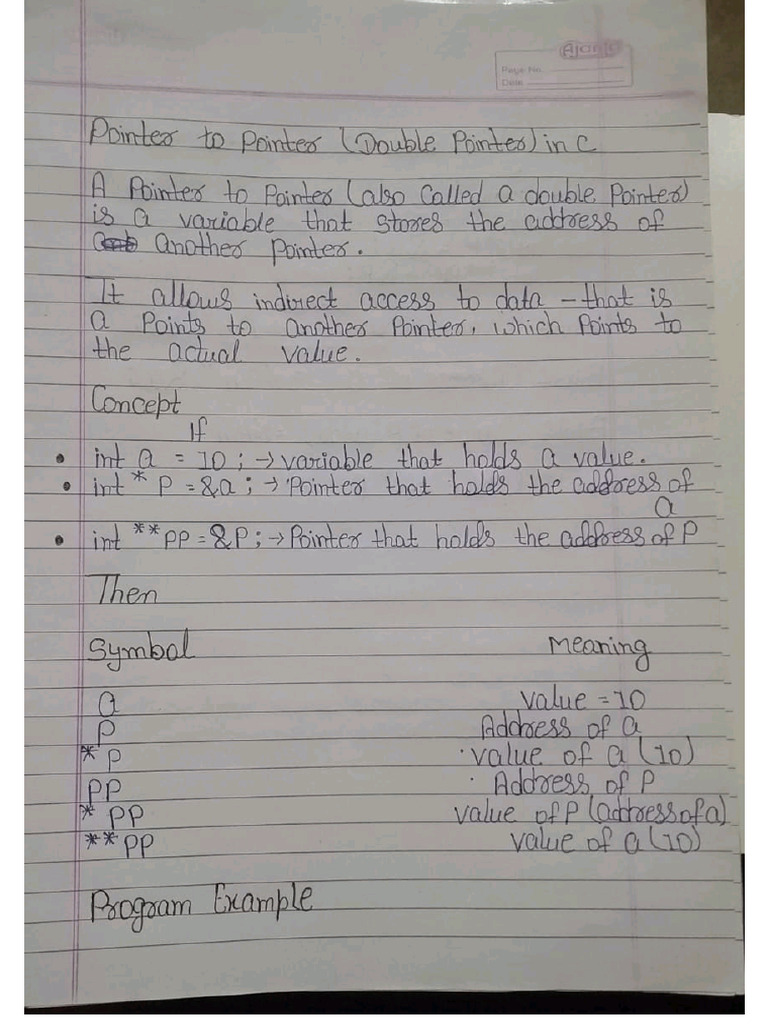 Ajanta
Page No.
Date
Pointer to Pointer (Double Pointer) in C
A Pointer to Pointer (also called a double Pointer)
is a variable that stores the address of
another pointer.
It allows indirect access to data - that is
a Points to another Pointer, which Points to
the actual value.
Concept
If
• int a = 10 ; → variable that holds a value.
• int * P = &a ; → Pointer that holds the address of
a
• int **PP = &P ; → Pointer that holds the address of P
Then
Symbol Meaning
a value = 10
P Address of a
* P value of a (10)
PP Address of P
* PP value of P (address of a)
** PP value of a (10)
Program Example